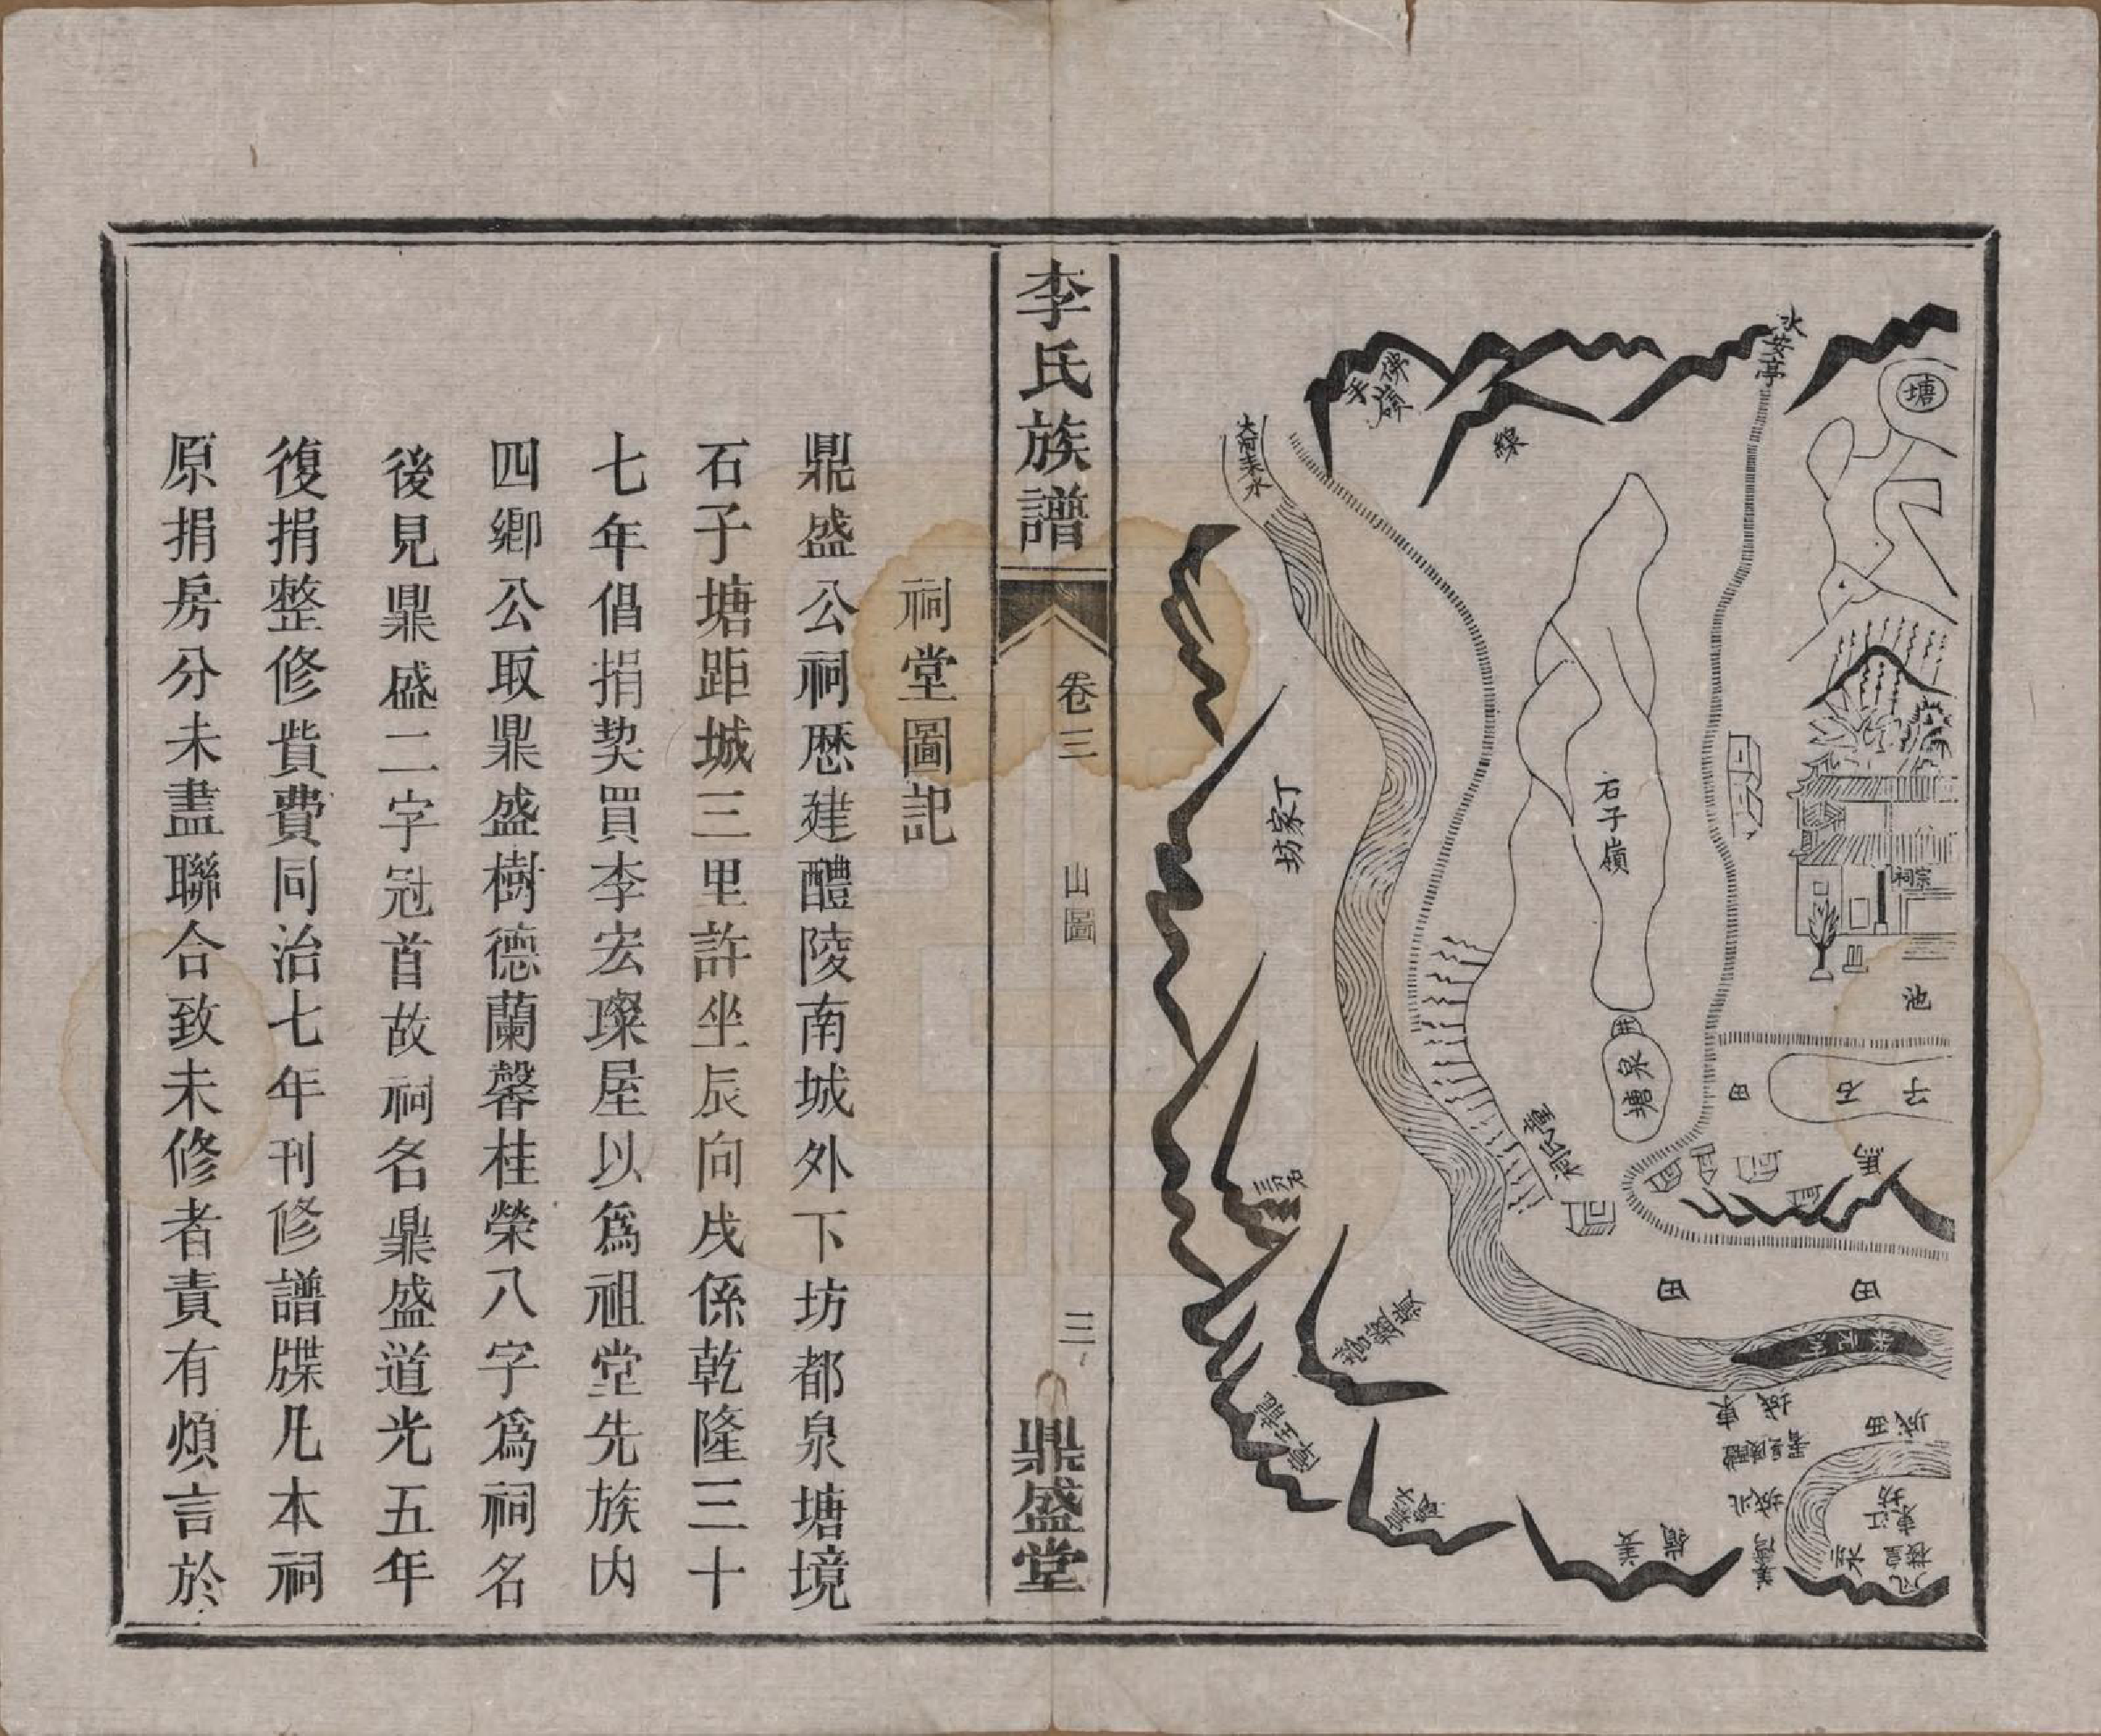 塘
水安亭
佛嶺
線
大河来水
丁家坊
石子嶺
井
泉塘
宗祠
池
田
石子
馬
田
田
城東
城西
城北
李氏族譜
卷三
山圖
三
鼎盛堂
祠堂圖記
鼎盛公祠歷建醴陵南城外下坊都泉塘境
石子塘距城三里許坐辰向戌係乾隆三十
七年倡捐契買李宏璨屋以為祖堂先族內
四鄉公取鼎盛樹德蘭馨桂榮八字為祠名
後見鼎盛二字冠首故祠名鼎盛道光五年
復捐整修貲費同治七年刊修譜牒凡本祠
原捐房分未盡聯合致未修者責有煩言於